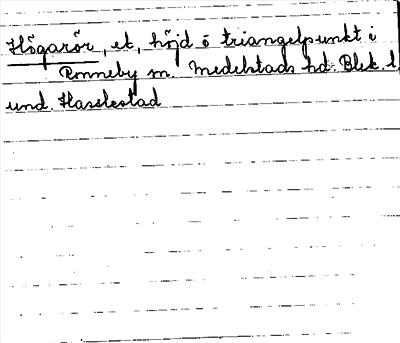 Högarör, et. höjd o triangelpunkt i
Ronneby sn. Medelstads hd. Blek. l.
und. Hasslestad